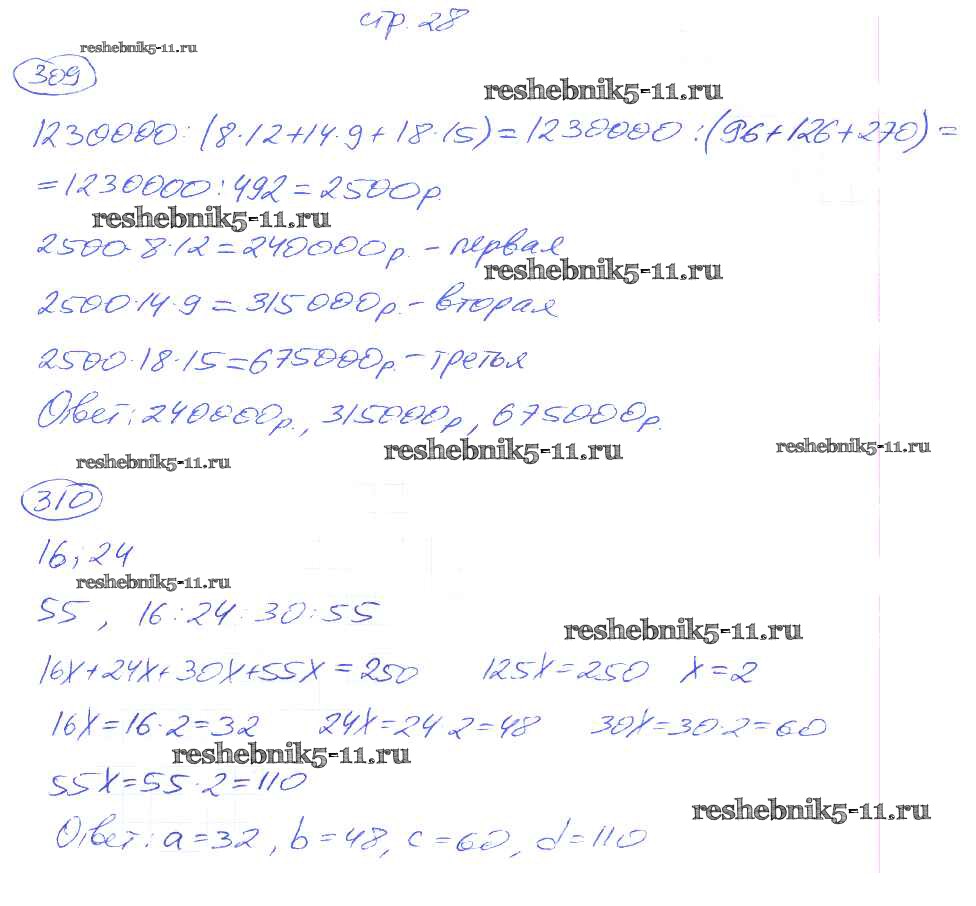 стр. 28
reshebnik5-11.ru
309
reshebnik5-11.ru
1230000:(8·12+14·9+18·15)=1230000:(96+126+270)=
=1230000:492=2500р.
reshebnik5-11.ru
2500·8·12=240000р.-первая
reshebnik5-11.ru
2500·14·9=315000р.-вторая
2500·18·15=675000р.-третья
Ответ:240000р., 315000р, 675000р.
reshebnik5-11.ru
reshebnik5-11.ru
reshebnik5-11.ru
310
16;24
reshebnik5-11.ru
55, 16:24:30:55
reshebnik5-11.ru
16x+24x+30x+55x=250 125x=250 x=2
16x=16·2=32 24x=24·2=48 30x=30·2=60
reshebnik5-11.ru
55x=55·2=110
reshebnik5-11.ru
Ответ: a=32, b=48, c=60, d=110